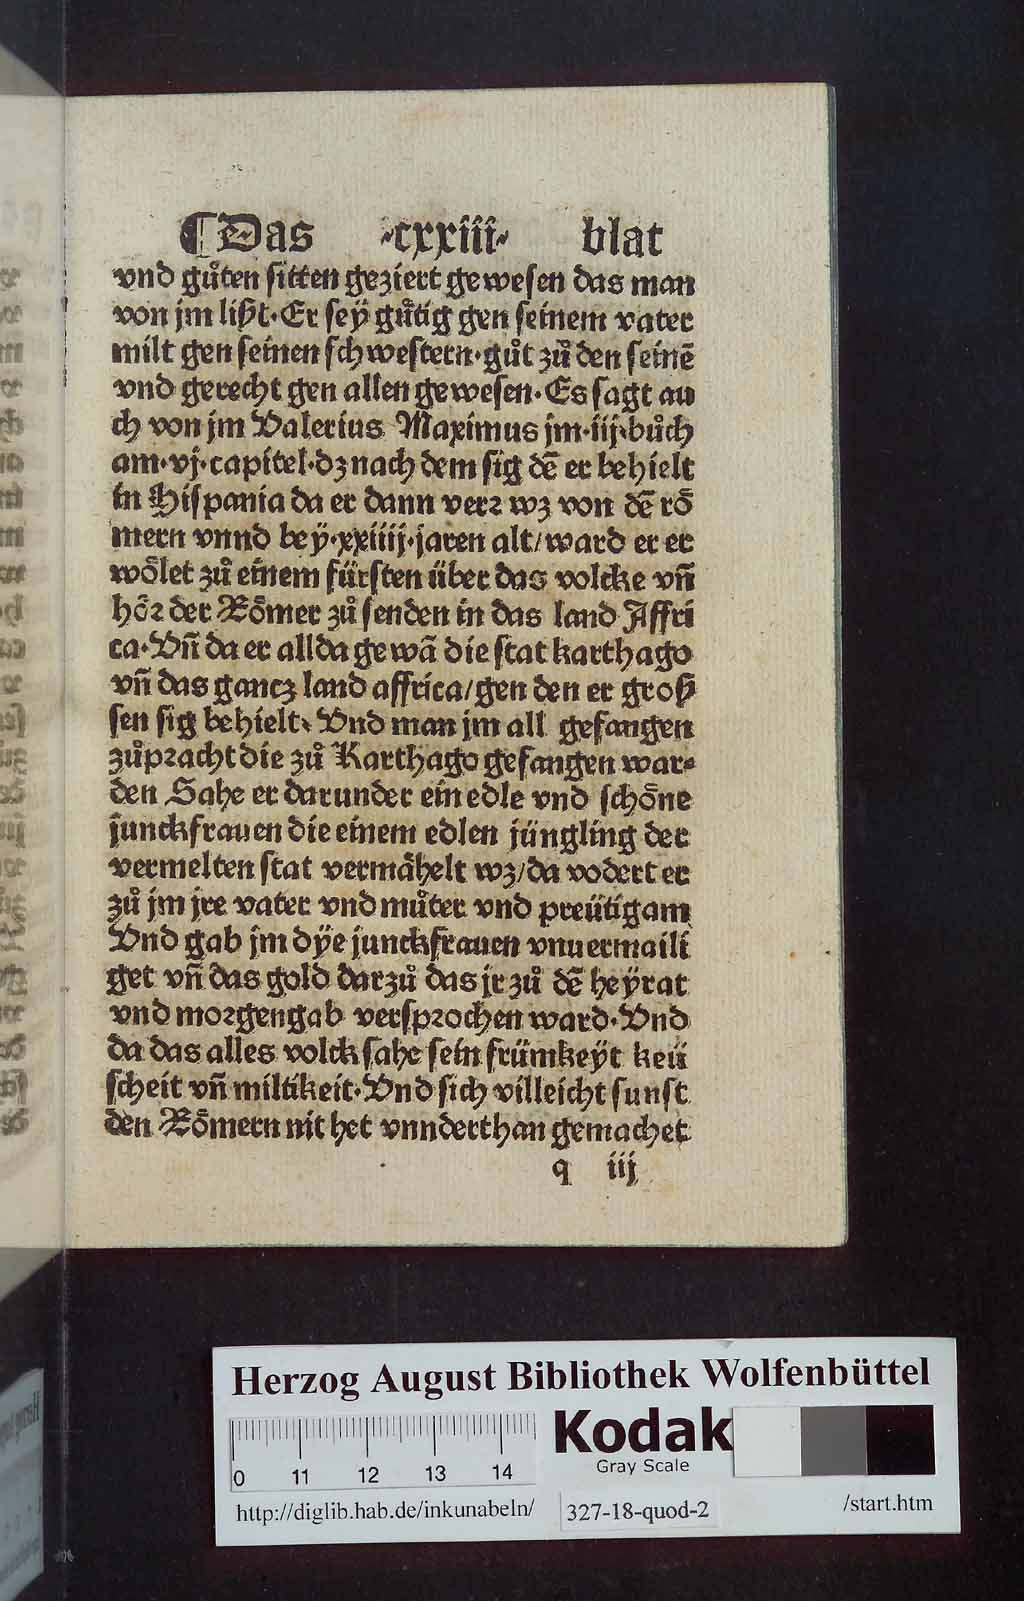 ¶Das ·cxxiii· blat
vnd gůten sitten geziert gewesen das man
von jm lißt·Er sey̆ gůtig gen seinem vater
milt gen seinen schwestern·gůt zů den seinē
vnd gerecht gen allen gewesen·Es sagt au
ch von jm Valerius Maximus jm·iij·bůch
am·vj·capitel·dz nach dem sig dē er behielt
in Hispania da er dann verꝛ wz von dē rȫ
mern vnnd bey̆·xxiiij·jaren alt/ward er er
wölet zů einem fürsten über das volcke vñ
höꝛ der Römer zů senden in das land Affri
ca·Vñ da er allda gewā die stat karthago
vñ das gancz land affrica/gen den er groß
sen sig behielt·Vnd man jm all gefangen
zůpꝛacht die zů Karthago gefangen war⸗
den Sahe er darunder ein edle vnd schöne
junckfrauen die einem edlen jüngling der
vermelten stat vermähelt wz/da vodert er
zů jm jre vater vnd můter vnd preütigam
Vnd gab jm dÿe junckfrauen vnuermaili
get vñ das gold darzů das jr zů dē heÿrat
vnd moꝛgengab verspꝛochen ward·Vnd
da das alles volck sahe sein frümkeÿt keü
scheit vñ miltikeit·Vnd sich villeicht sunst
den Römern nit het vnnderthan gemachet
q iij
Herzog August Bibliothek Wolfenbüttel
Kodak
Gray Scale
0 11 12 13 14
http://diglib.hab.de/inkunabeln/ 327-18-quod-2 /start.htm